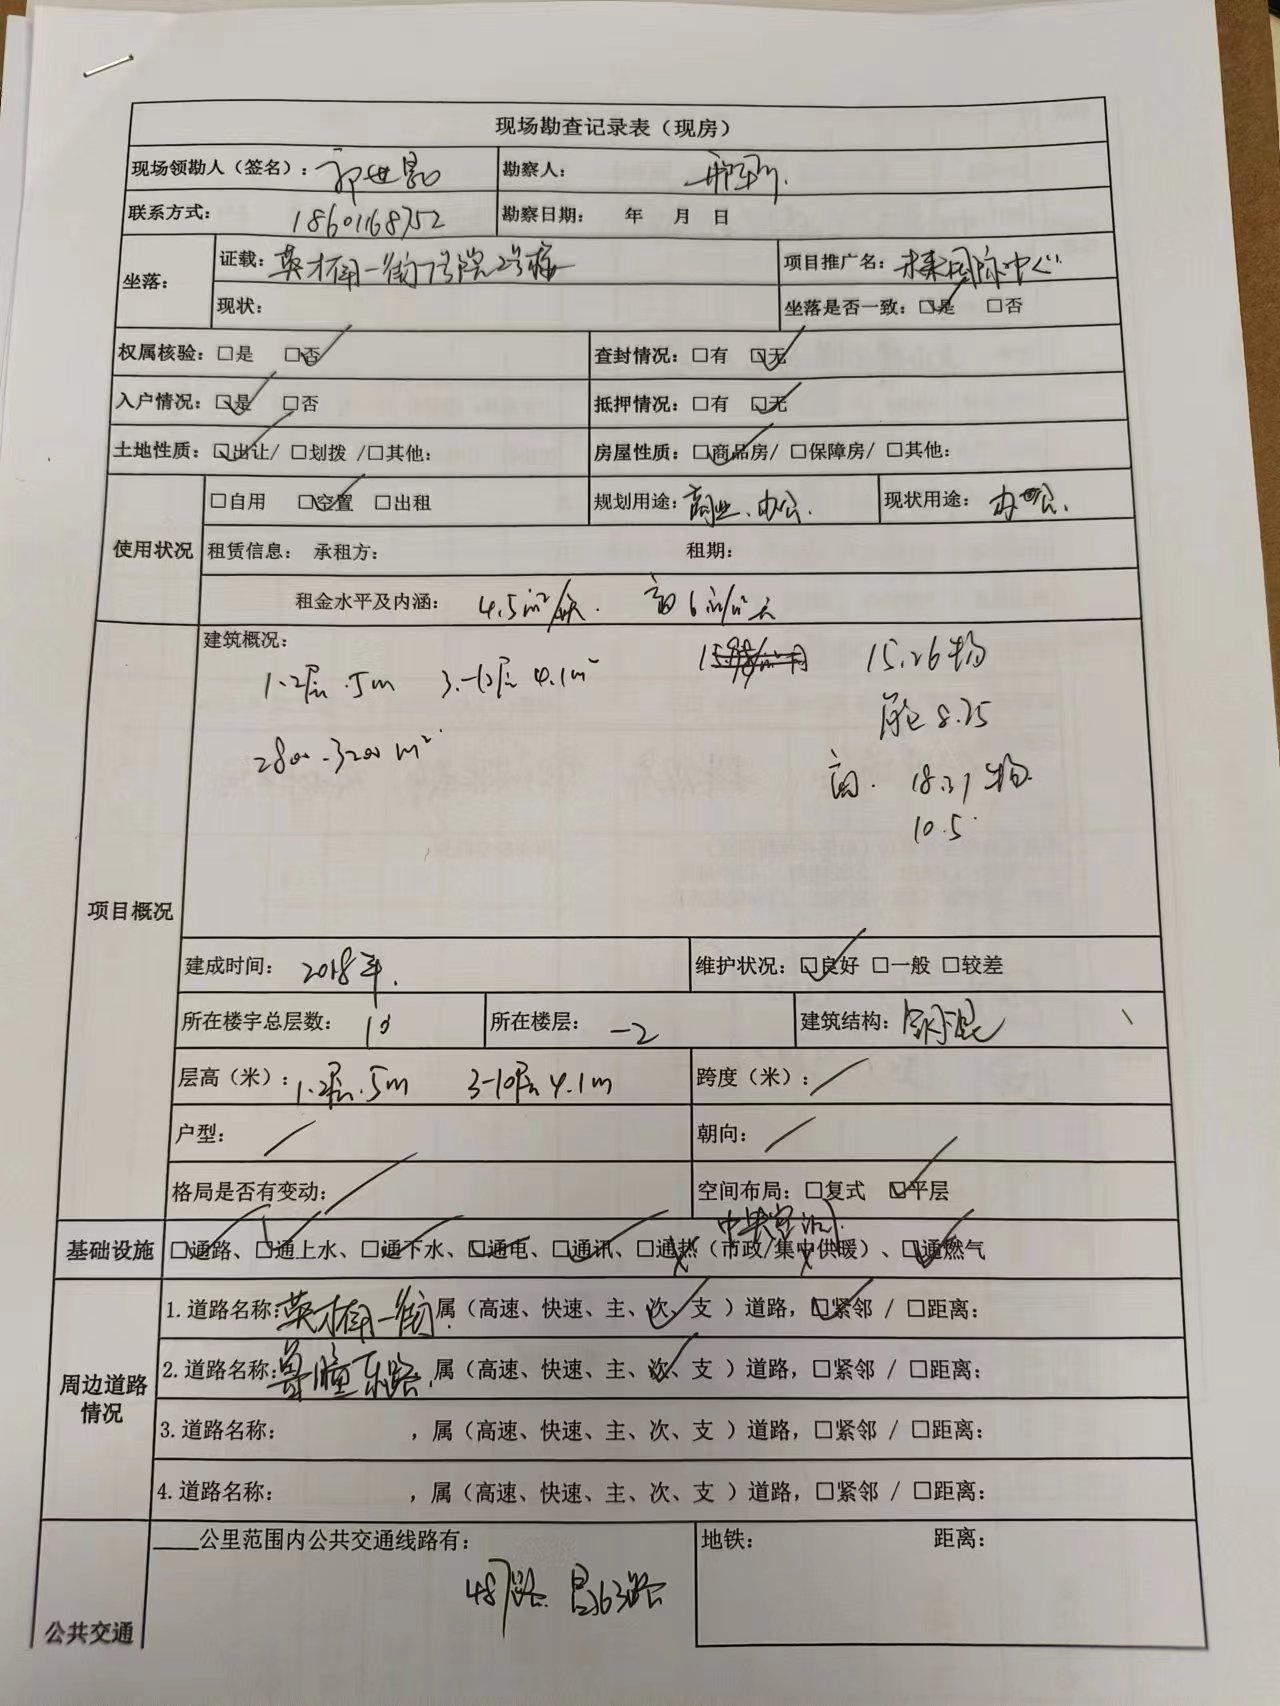 现场勘查记录表（现房）
现场领勘人（签名）： 勘察人：
联系方式：18601168752 勘察日期： 年 月 日
坐落： 证载：英才南一街7号院2号楼 项目推广名：未来国际中心
现状： 坐落是否一致：☑是 □否
权属核验：□是 ☑否 查封情况：□有 ☑无
入户情况：☑是 □否 抵押情况：□有 ☑无
土地性质：☑出让/ □划拨 /□其他： 房屋性质：☑商品房/ □保障房/ □其他：
使用状况 □自用 ☑空置 □出租 规划用途：商业、办公. 现状用途：办公.
租赁信息： 承租方： 租期：
租金水平及内涵： 4.5m²/天. 商6元/m²天
建筑概况：
1-2层.5m 3-10层 4.1m² 15.26物
2800-3200m² 8.25
商. 18.31物
10.5
项目概况
建成时间：2018年. 维护状况：☑良好 □一般 □较差
所在楼宇总层数：10 所在楼层：-2 建筑结构：钢混
层高（米）：1-2层.5m 3-10层4.1m 跨度（米）：/
户型：/ 朝向：/
格局是否有变动：/ 空间布局：□复式 ☑平层
中央空调.
基础设施 ☑通路、☑通上水、☑通下水、☑通电、☑通讯、□通热（市政/集中供暖）、☑通燃气
周边道路情况 1.道路名称：英才南一街，属（高速、快速、主、次✓、支 ）道路，☑紧邻 / □距离：
2.道路名称：鲁疃东路，属（高速、快速、主、次✓、支 ）道路，□紧邻 / □距离：
3.道路名称： ，属（高速、快速、主、次、支 ）道路，□紧邻 / □距离：
4.道路名称： ，属（高速、快速、主、次、支 ）道路，□紧邻 / □距离：
公共交通 ____公里范围内公共交通线路有： 地铁： 距离：
487路 昌63路